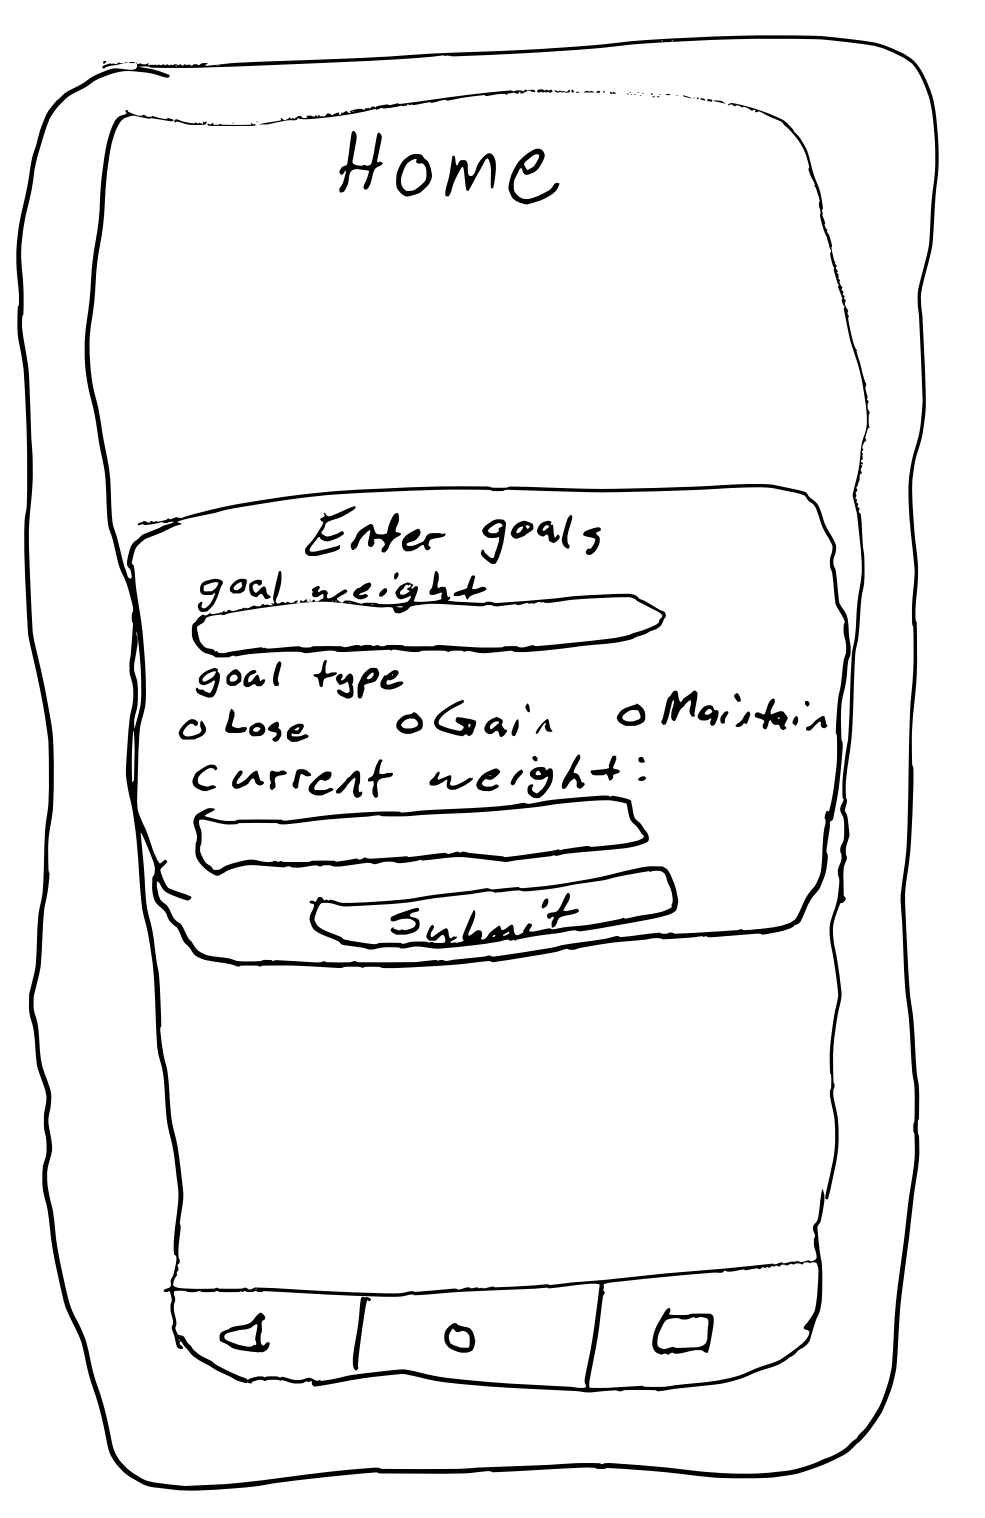 Home
Enter goals
goal weight
goal type
Lose Gain Maintain
Current weight:
Submit